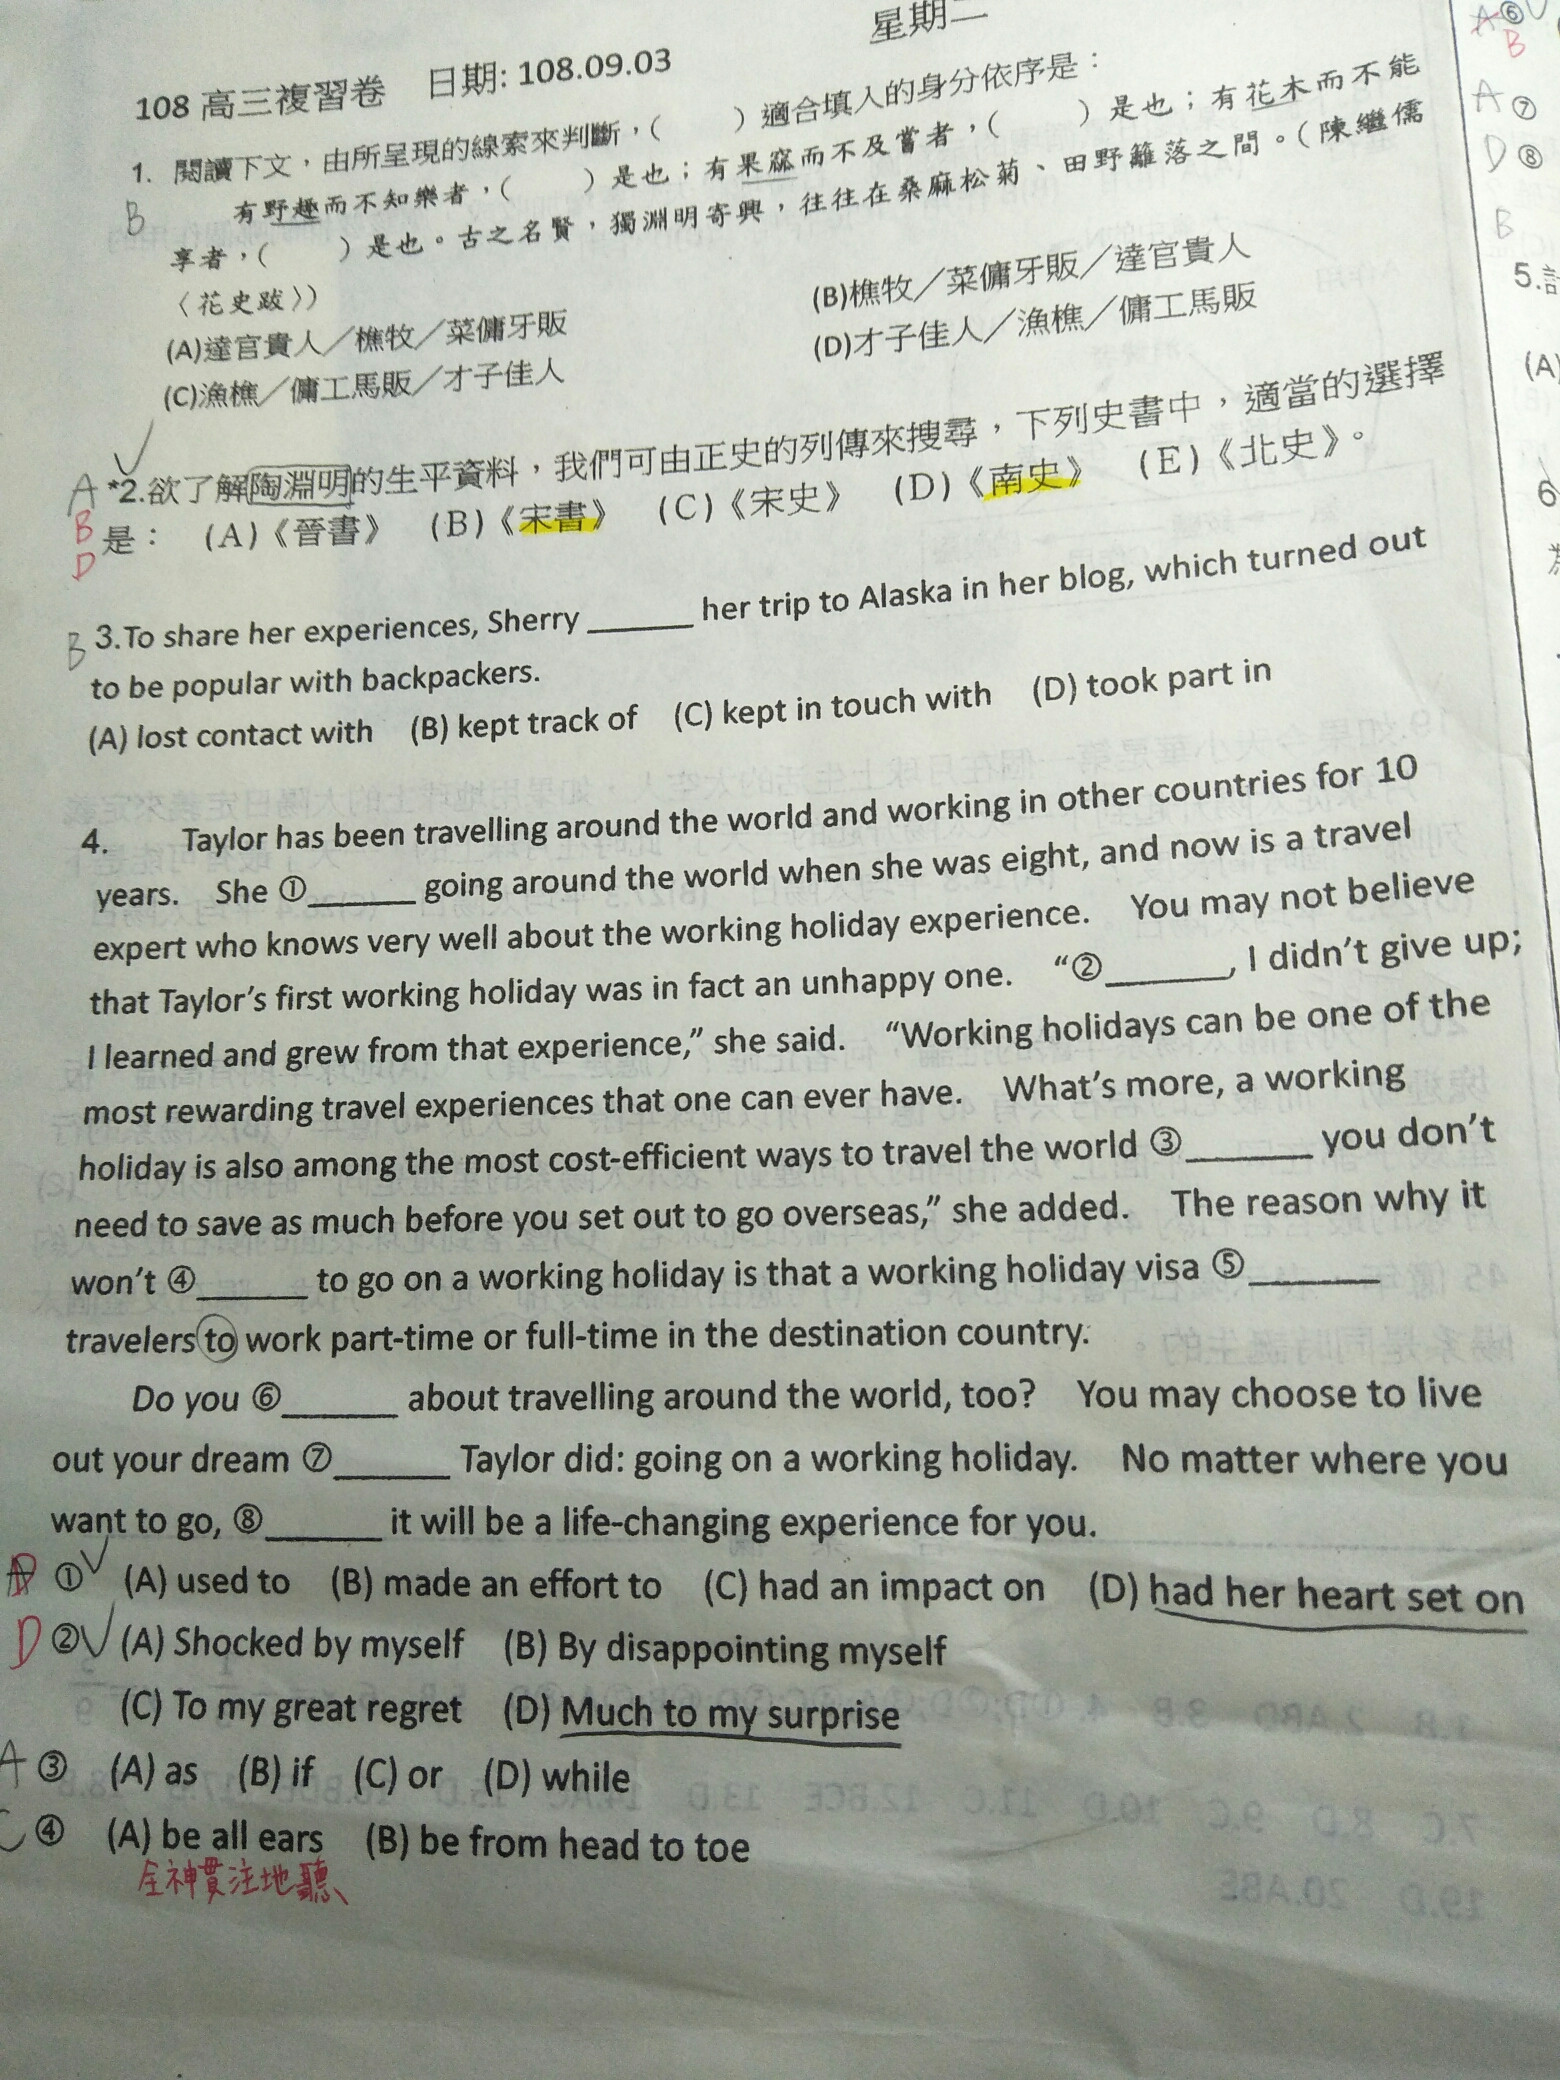 星期二
108 高三複習卷　日期: 108.09.03
1. 閱讀下文，由所呈現的線索來判斷，(　　)適合填入的身分依序是：
B
有野趣而不知樂者，(　　)是也；有果窳而不及嘗者，(　　)是也；有花木而不能
享者，(　　)是也。古之名賢，獨淵明寄興，往往在桑麻松菊、田野籬落之間。(陳繼儒
〈花史跋〉)
(A)達官貴人／樵牧／菜傭牙販　(B)樵牧／菜傭牙販／達官貴人
(C)漁樵／傭工馬販／才子佳人　(D)才子佳人／漁樵／傭工馬販
A *2.欲了解陶淵明的生平資料，我們可由正史的列傳來搜尋，下列史書中，適當的選擇
B
D
是：　(A)《晉書》　(B)《宋書》　(C)《宋史》　(D)《南史》　(E)《北史》。
B 3.To share her experiences, Sherry ______ her trip to Alaska in her blog, which turned out
to be popular with backpackers.
(A) lost contact with (B) kept track of (C) kept in touch with (D) took part in
4. Taylor has been travelling around the world and working in other countries for 10
years. She ①______ going around the world when she was eight, and now is a travel
expert who knows very well about the working holiday experience. You may not believe
that Taylor's first working holiday was in fact an unhappy one. "②______, I didn't give up;
I learned and grew from that experience," she said. "Working holidays can be one of the
most rewarding travel experiences that one can ever have. What's more, a working
holiday is also among the most cost-efficient ways to travel the world ③______ you don't
need to save as much before you set out to go overseas," she added. The reason why it
won't ④______ to go on a working holiday is that a working holiday visa ⑤______
travelers to work part-time or full-time in the destination country.
Do you ⑥______ about travelling around the world, too? You may choose to live
out your dream ⑦______ Taylor did: going on a working holiday. No matter where you
want to go, ⑧______ it will be a life-changing experience for you.
D ① (A) used to (B) made an effort to (C) had an impact on (D) had her heart set on
D ② (A) Shocked by myself (B) By disappointing myself
(C) To my great regret (D) Much to my surprise
A ③ (A) as (B) if (C) or (D) while
C ④ (A) be all ears (B) be from head to toe
全神貫注地聽
A ⑥
B
A ⑦
D ⑧
B
5.
(A)
6